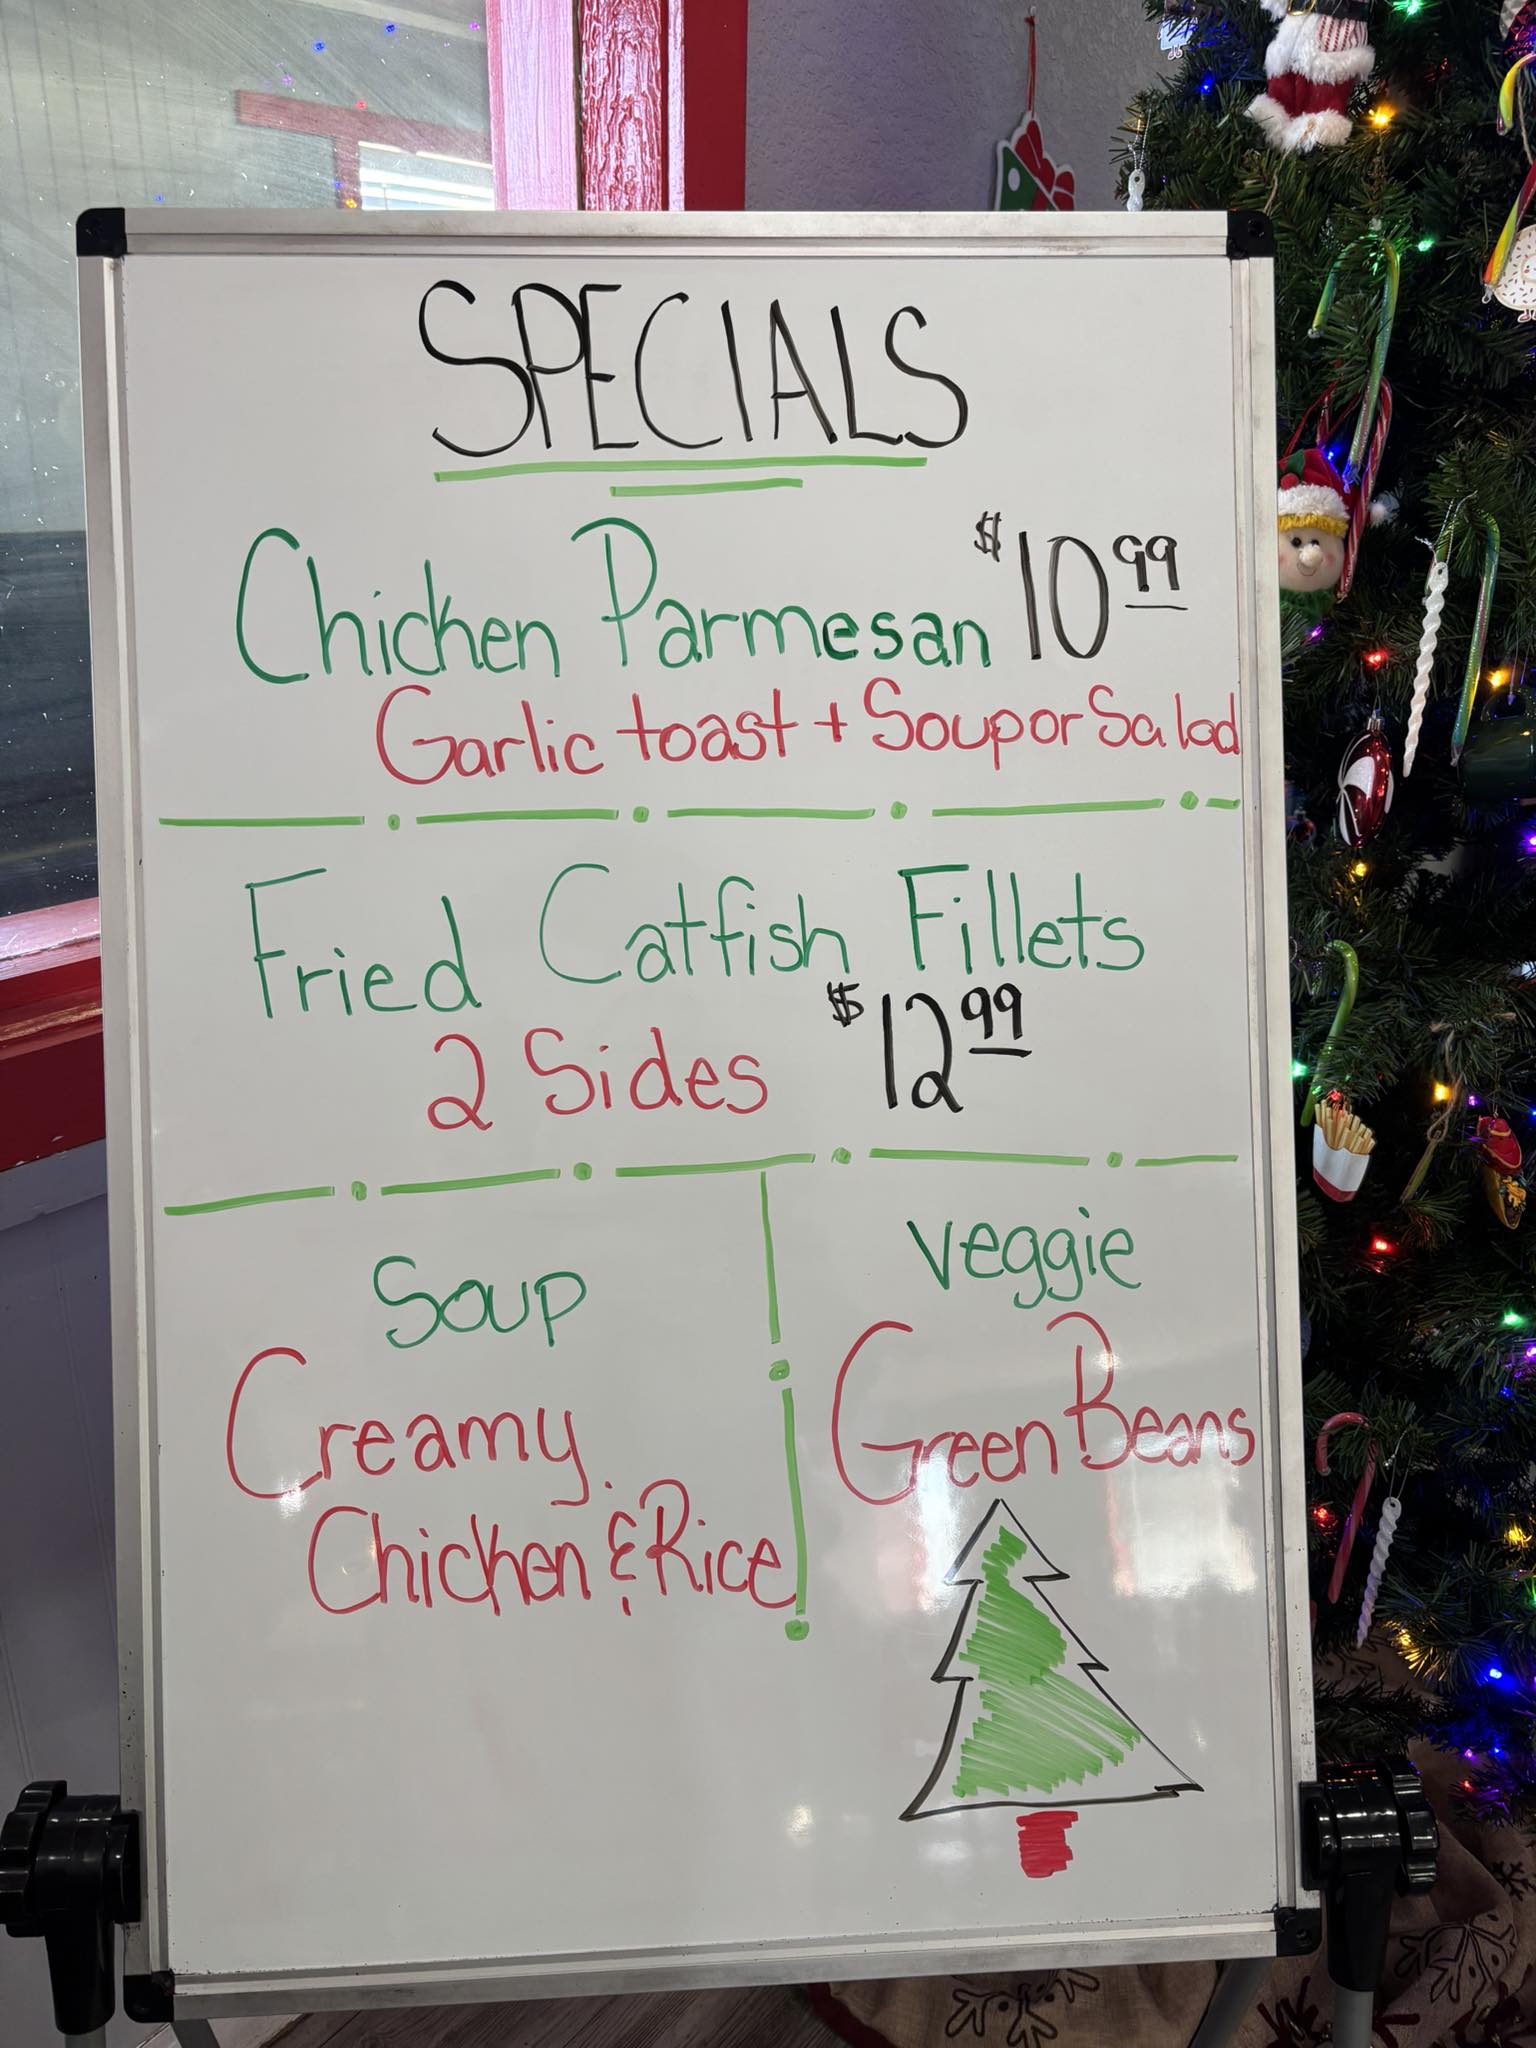 SPECIALS
Chicken Parmesan $10.99
Garlic toast + Soup or Salad
Fried Catfish Fillets
2 Sides $12.99
Soup
Creamy
Chicken & Rice
veggie
Green Beans